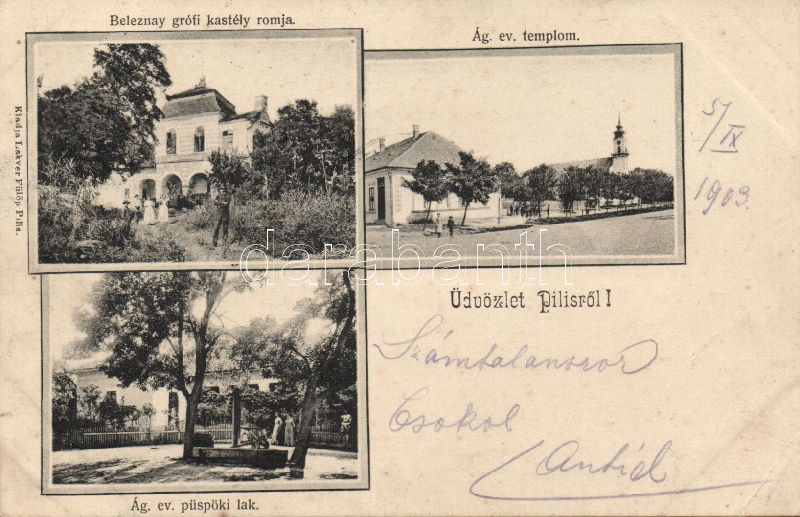 Beleznay grófi kastély romja.
Ág. ev. templom.
Kiadja Lakver Fülöp Pilis.
5/IX
1903.
darabanth
Üdvözlet Pilisről!
Számtalanszor
Csokol
Antal
Ág. ev. püspöki lak.